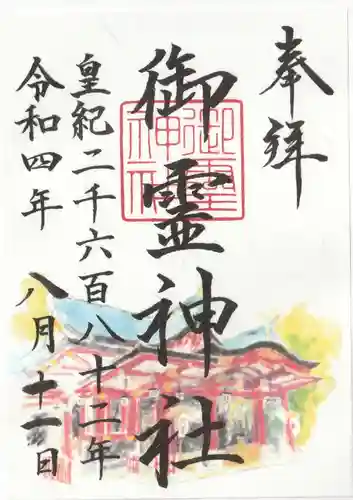 奉拝
御霊神社
御霊神社
皇紀二千六百八十二年
令和四年
八月十一日